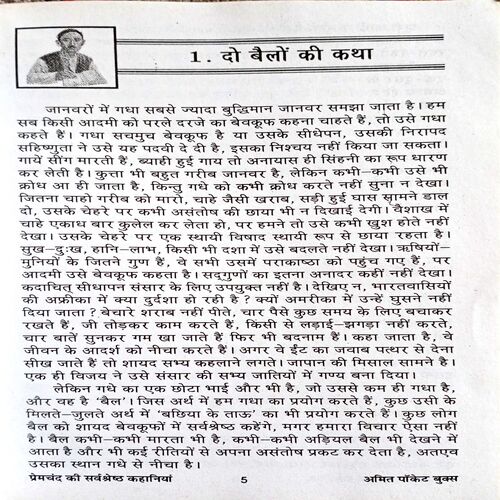 1. दो बैलों की कथा
जानवरों में गधा सबसे ज्यादा बुद्धिमान जानवर समझा जाता है। हम
सब किसी आदमी को परले दरजे का बेवकूफ कहना चाहते हैं, तो उसे गधा
कहते हैं। गधा सचमुच बेवकूफ है या उसके सीधेपन, उसकी निरापद
सहिष्णुता ने उसे यह पदवी दे दी है, इसका निश्चय नहीं किया जा सकता।
गायें सींग मारती हैं, ब्याही हुई गाय तो अनायास ही सिंहनी का रूप धारण
कर लेती है। कुत्ता भी बहुत गरीब जानवर है, लेकिन कभी–कभी उसे भी
क्रोध आ ही जाता है, किन्तु गधे को कभी क्रोध करते नहीं सुना न देखा।
जितना चाहो गरीब को मारो, चाहे जैसी खराब, सड़ी हुई घास सामने डाल
दो, उसके चेहरे पर कभी असंतोष की छाया भी न दिखाई देगी। वैशाख में
चाहे एकाध बार कुलेल कर लेता हो, पर हमने तो उसे कभी खुश होते नहीं
देखा। उसके चेहरे पर एक स्थायी विषाद स्थायी रूप से छाया रहता है।
सुख–दुःख, हानि–लाभ, किसी भी दशा में उसे बदलते नहीं देखा। ऋषियों–
मुनियों के जितने गुण हैं, वे सभी उसमें पराकाष्ठा को पहुंच गए हैं, पर
आदमी उसे बेवकूफ कहता है। सद्गुणों का इतना अनादर कहीं नहीं देखा।
कदाचित् सीधापन संसार के लिए उपयुक्त नहीं है। देखिए न, भारतवासियों
की अफ्रीका में क्या दुर्दशा हो रही है? क्यों अमरीका में उन्हें घुसने नहीं
दिया जाता? बेचारे शराब नहीं पीते, चार पैसे कुछ समय के लिए बचाकर
रखते हैं, जी तोड़कर काम करते हैं, किसी से लड़ाई–झगड़ा नहीं करते,
चार बातें सुनकर गम खा जाते हैं फिर भी बदनाम हैं। कहा जाता है, वे
जीवन के आदर्श को नीचा करते हैं। अगर वे ईंट का जवाब पत्थर से देना
सीख जाते हैं तो शायद सभ्य कहलाने लगते। जापान की मिसाल सामने है।
एक ही विजय ने उसे संसार की सभ्य जातियों में गण्य बना दिया।
लेकिन गधे का एक छोटा भाई और भी है, जो उससे कम ही गधा है,
और वह है ‘बैल’। जिस अर्थ में हम गधा का प्रयोग करते हैं, कुछ उसी के
मिलते–जुलते अर्थ में ‘बछिया के ताऊ’ का भी प्रयोग करते हैं। कुछ लोग
बैल को शायद बेवकूफों में सर्वश्रेष्ठ कहेंगे, मगर हमारा विचार ऐसा नहीं
है। बैल कभी–कभी मारता भी है, कभी–कभी अड़ियल बैल भी देखने में
आता है और भी कई रीतियों से अपना असंतोष प्रकट कर देता है, अतएव
उसका स्थान गधे से नीचा है।
प्रेमचंद की सर्वश्रेष्ठ कहानियां 5 अमित पॉकेट बुक्स